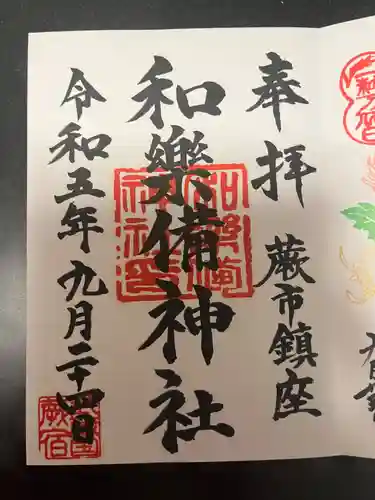 奉拝
蕨市鎮座
和樂備神社
和樂備神社印
令和五年九月二十四日
蕨宿